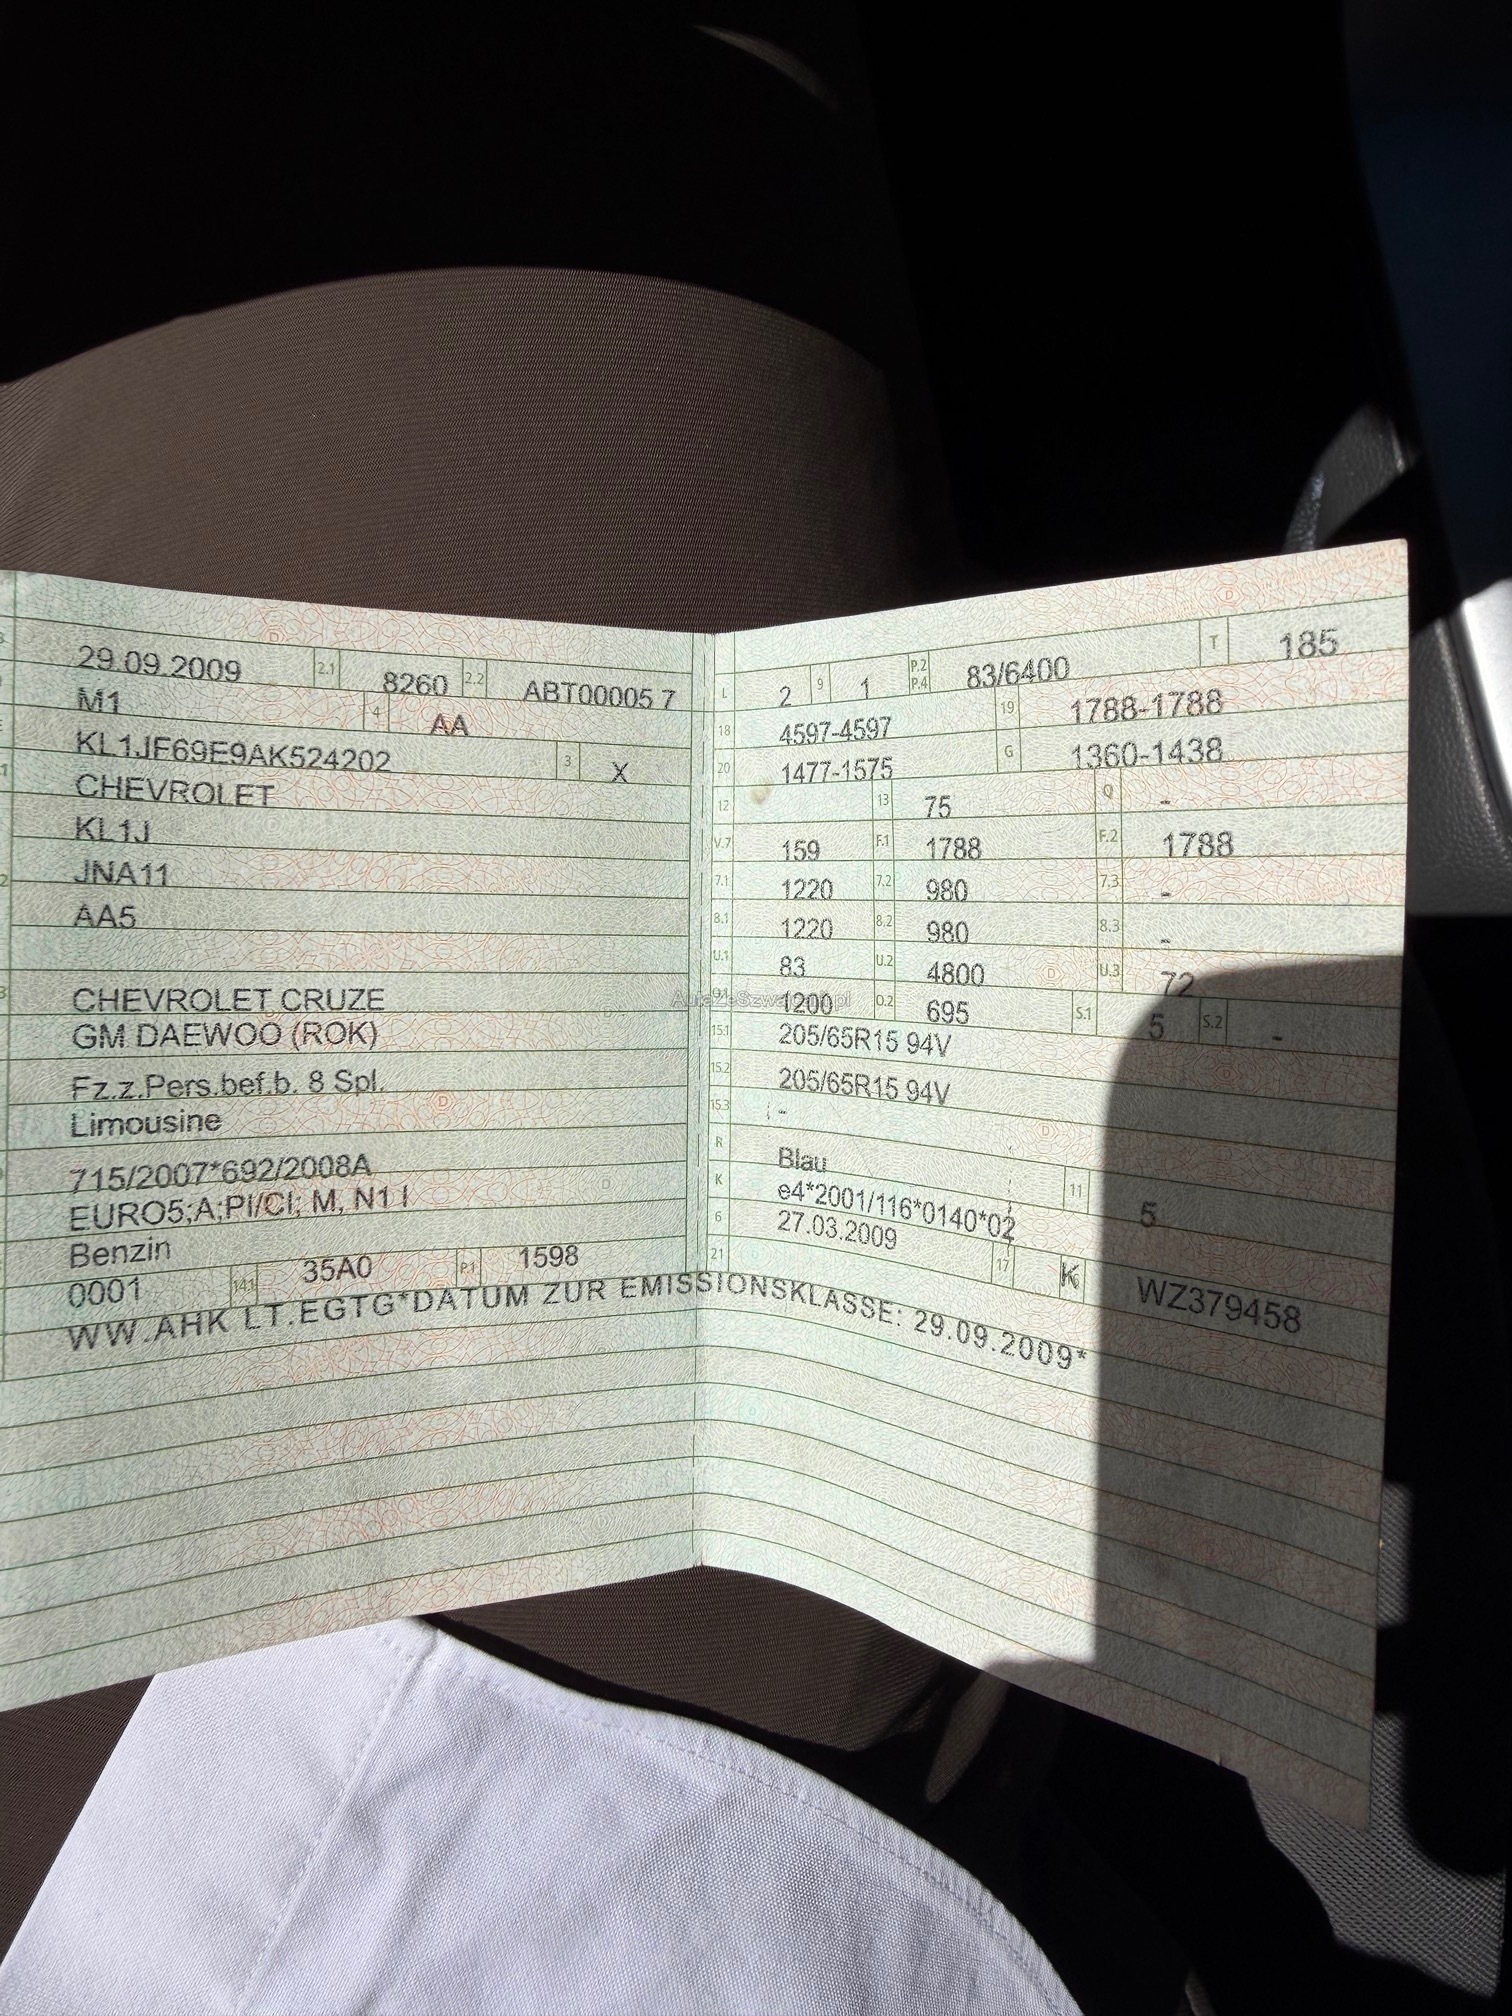 29.09.2009 2.1 8260 2.2 ABT00005 7
M1 4 AA
KL1JF69E9AK524202 3 X
CHEVROLET
KL1J
JNA11
AA5
CHEVROLET CRUZE
GM DAEWOO (ROK)
Fz.z.Pers.bef.b. 8 Spl.
Limousine
715/2007*692/2008A
EURO5;A;PI/CI; M, N1 I
Benzin
0001 14.1 35A0 P.1 1598
WW.AHK LT.EGTG*DATUM ZUR EMISSIONSKLASSE: 29.09.2009*
L 2 9 1 P.2 P.4 83/6400 T 185
18 4597-4597 19 1788-1788
20 1477-1575 G 1360-1438
12 13 75 Q -
V.7 159 F.1 1788 F.2 1788
7.1 1220 7.2 980 7.3 -
8.1 1220 8.2 980 8.3 -
U.1 83 U.2 4800 U.3 72
O.1 1200 O.2 695 S.1 5 S.2 -
15.1 205/65R15 94V
15.2 205/65R15 94V
15.3 -
R Blau 11 5
K e4*2001/116*0140*02
6 27.03.2009 17 K 16 WZ379458
21